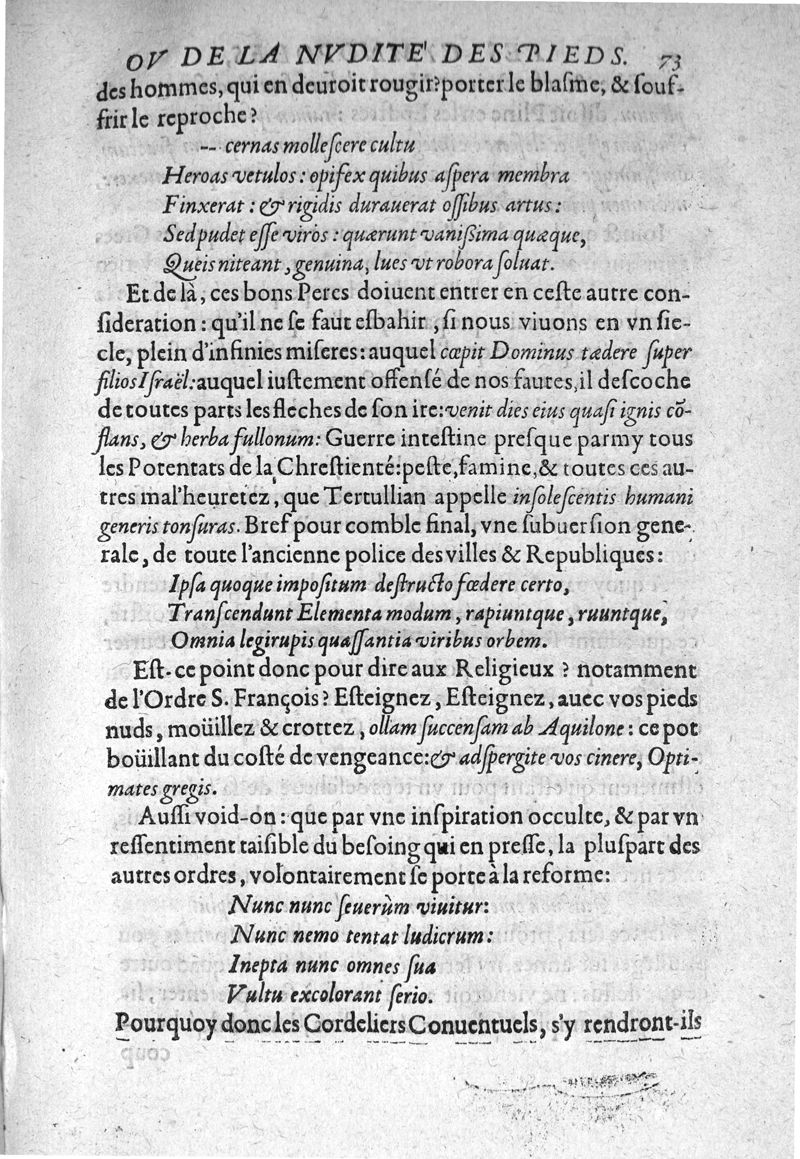 OV DE LA NVDITE' DES PIEDS. 73
des hommes, qui en deuroit rougir?porter le blaſme, & ſouf-
frir le reproche?
-- cernas molleſcere cultu
Heroas vetulos : opifex quibus aſpera membra
Finxerat : & rigidis durauerat oſſibus artus :
Sed pudet eſſe viros : quærunt vaniſsima quæque,
Queis niteant, genuina, lues vt robora ſoluat.
Et de là, ces bons Peres doiuent entrer en ceſte autre con-
ſideration : qu'il ne ſe faut esbahir, ſi nous viuons en vn ſie-
cle, plein d'infinies miſeres: auquel cœpit Dominus tædere ſuper
filios Iſraël: auquel iuſtement offenſé de nos fautes, il deſcoche
de toutes parts les fleches de ſon ire: venit dies eius quaſi ignis cō-
flans, & herba fullonum: Guerre inteſtine preſque parmy tous
les Potentats de la Chreſtienté: peſte, famine, & toutes ces au-
tres mal'heuretez, que Tertullian appelle inſoleſcentis humani
generis tonſuras. Bref pour comble final, vne ſubuerſion gene-
rale, de toute l'ancienne police des villes & Republiques:
Ipſa quoque impoſitum deſtructo fœdere certo,
Tranſcendunt Elementa modum, rapiuntque, ruuntque,
Omnia legirupis quaſſantia viribus orbem.
Eſt-ce point donc pour dire aux Religieux ? notamment
de l'Ordre S. François? Eſteignez, Eſteignez, auec vos pieds
nuds, moüillez & crottez, ollam ſuccenſam ab Aquilone : ce pot
boüillant du coſté de vengeance: & adſpergite vos cinere, Opti-
mates gregis.
Auſſi void-on : que par vne inſpiration occulte, & par vn
reſſentiment taiſible du beſoing qui en preſſe, la pluſpart des
autres ordres, volontairement ſe porte à la reforme:
Nunc nunc ſeuerùm viuitur:
Nunc nemo tentat ludicrum:
Inepta nunc omnes ſua
Vultu excolorant ſerio.
Pourquoy donc les Cordeliers Conuentuels, s'y rendront-ils
coup